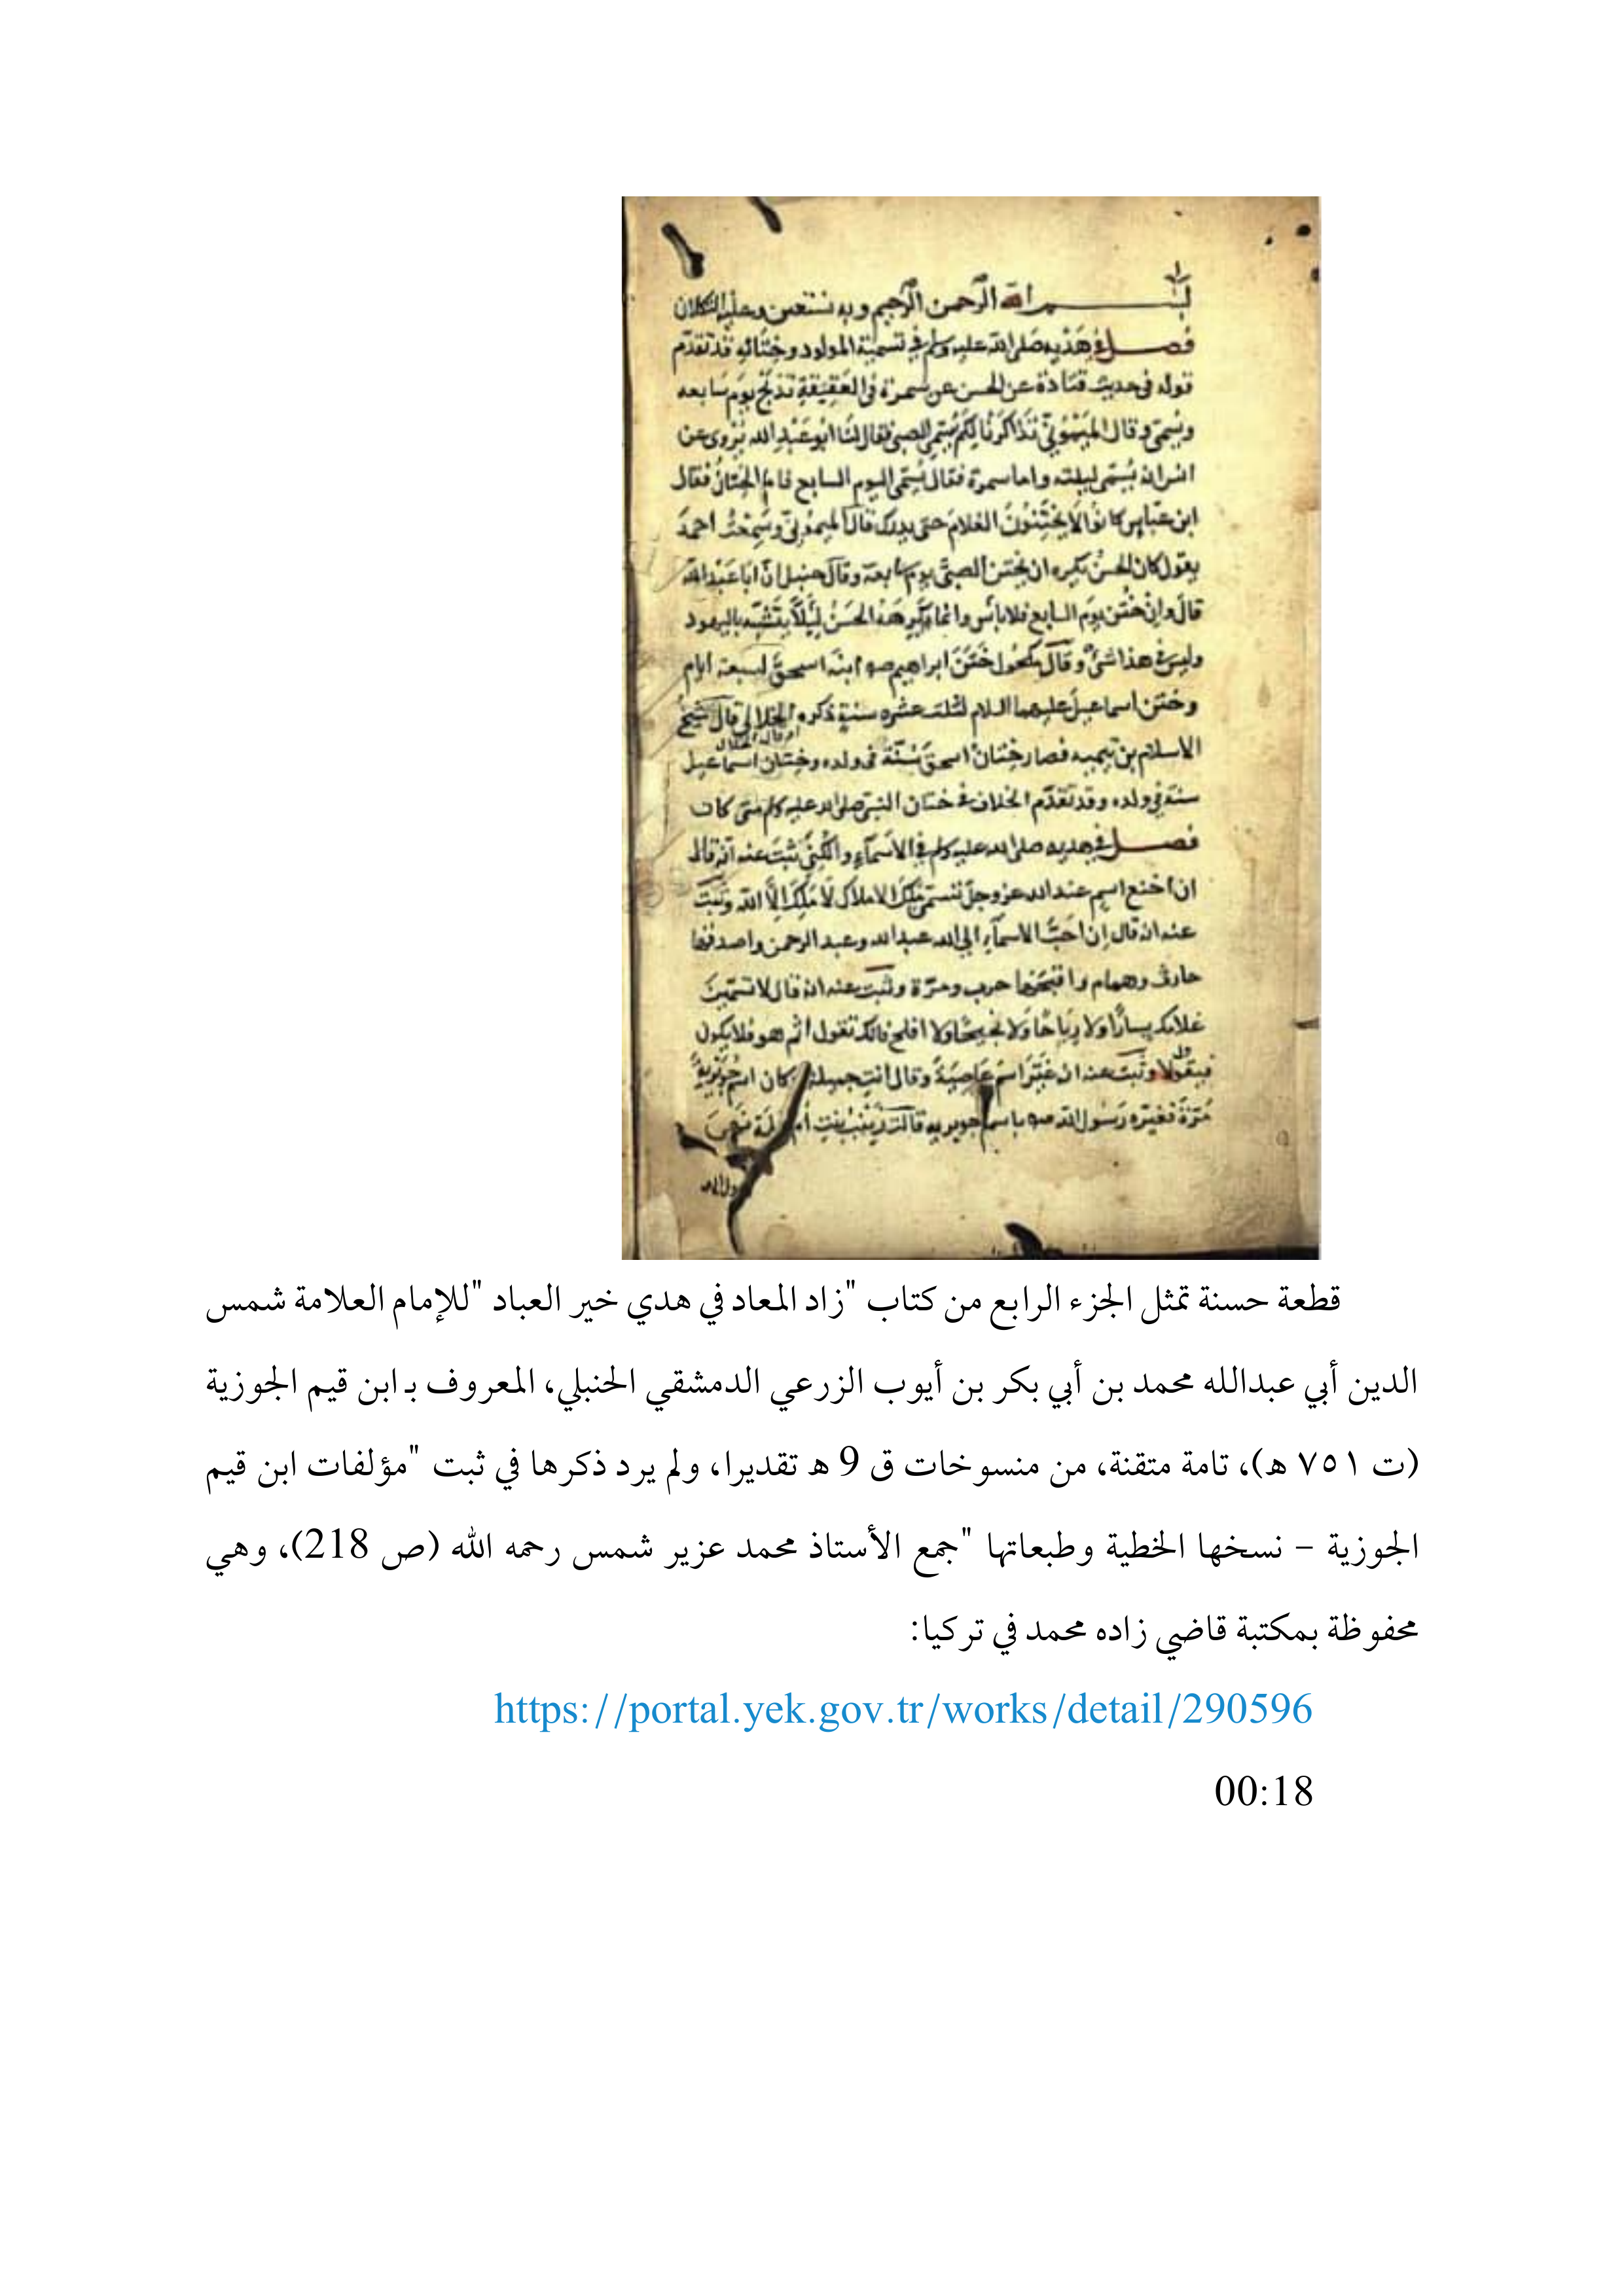 بسم الله الرحمن الرحيم وبه نستعين وعليه التكلان
فصل في هديه صلى الله عليه وسلم في تسمية المولود وختانه قد تقدم
قوله في حديث قتادة عن الحسن عن سمرة في العقيقة تذبح يوم سابعه
ويسمى وقال الميموني تذاكرنا لكم يسمى الصبي فقال لنا ابو عبد الله يروى عن
انس انه يسمى ليلته واما سمرة فقال يسمى اليوم السابع فاما الختان فقال
ابن عباس كانوا لا يختنون الغلام حتى يدرك قال الميموني وسمعت احمد
يقول كان الحسن يكره ان يختن الصبي يوم سابعه وقال حنبل ان ابا عبد الله
قال وان ختن يوم السابع فلا باس وانما كره الحسن ليلا يتشبه باليهود
وليس في هذا شئ وقال مكحول ختن ابراهيم ابنه اسحق لسبعة ايام
وختن اسماعيل عليهما السلام لثلث عشره سنة ذكره الخلال قال شيخ
الاسلام بن تيميه فصار ختان اسحق سنة في ولده وختان اسماعيل
سنة في ولده وقد تقدم الخلاف في ختان النبي صلى الله عليه وسلم متى كان
فصل في هديه صلى الله عليه وسلم في الاسماء والكنى ثبت عنه انه قال
ان اخنع اسم عند الله عز وجل تسمى ملك الاملاك لا ملك الا الله وثبت
عنه انه قال ان احب الاسماء الى الله عبد الله وعبد الرحمن واصدقها
حارث وهمام واقبحها حرب ومرة وثبت عنه انه قال لا تسمين
غلامك يسارا ولا رباحا ولا نجيحا ولا افلح فانك تقول اثم هو فلا يكون
فيقول لا وثبت عنه ان غير اسم عاصية وقال انت جميلة كان اسم جويرية
فغيره رسول الله باسم جويريه زينب بنت
قطعة حسنة تمثل الجزء الرابع من كتاب "زاد المعاد في هدي خير العباد "للإمام العلامة شمس
الدين أبي عبدالله محمد بن أبي بكر بن أيوب الزرعي الدمشقي الحنبلي، المعروف بـ ابن قيم الجوزية
(ت ٧٥١ هـ)، تامة متقنة، من منسوخات ق 9 هـ تقديرا، ولم يرد ذكرها في ثبت "مؤلفات ابن قيم
الجوزية – نسخها الخطية وطبعاتها "جمع الأستاذ محمد عزير شمس رحمه الله (ص 218)، وهي
محفوظة بمكتبة قاضي زاده محمد في تركيا:
https://portal.yek.gov.tr/works/detail/290596
00:18